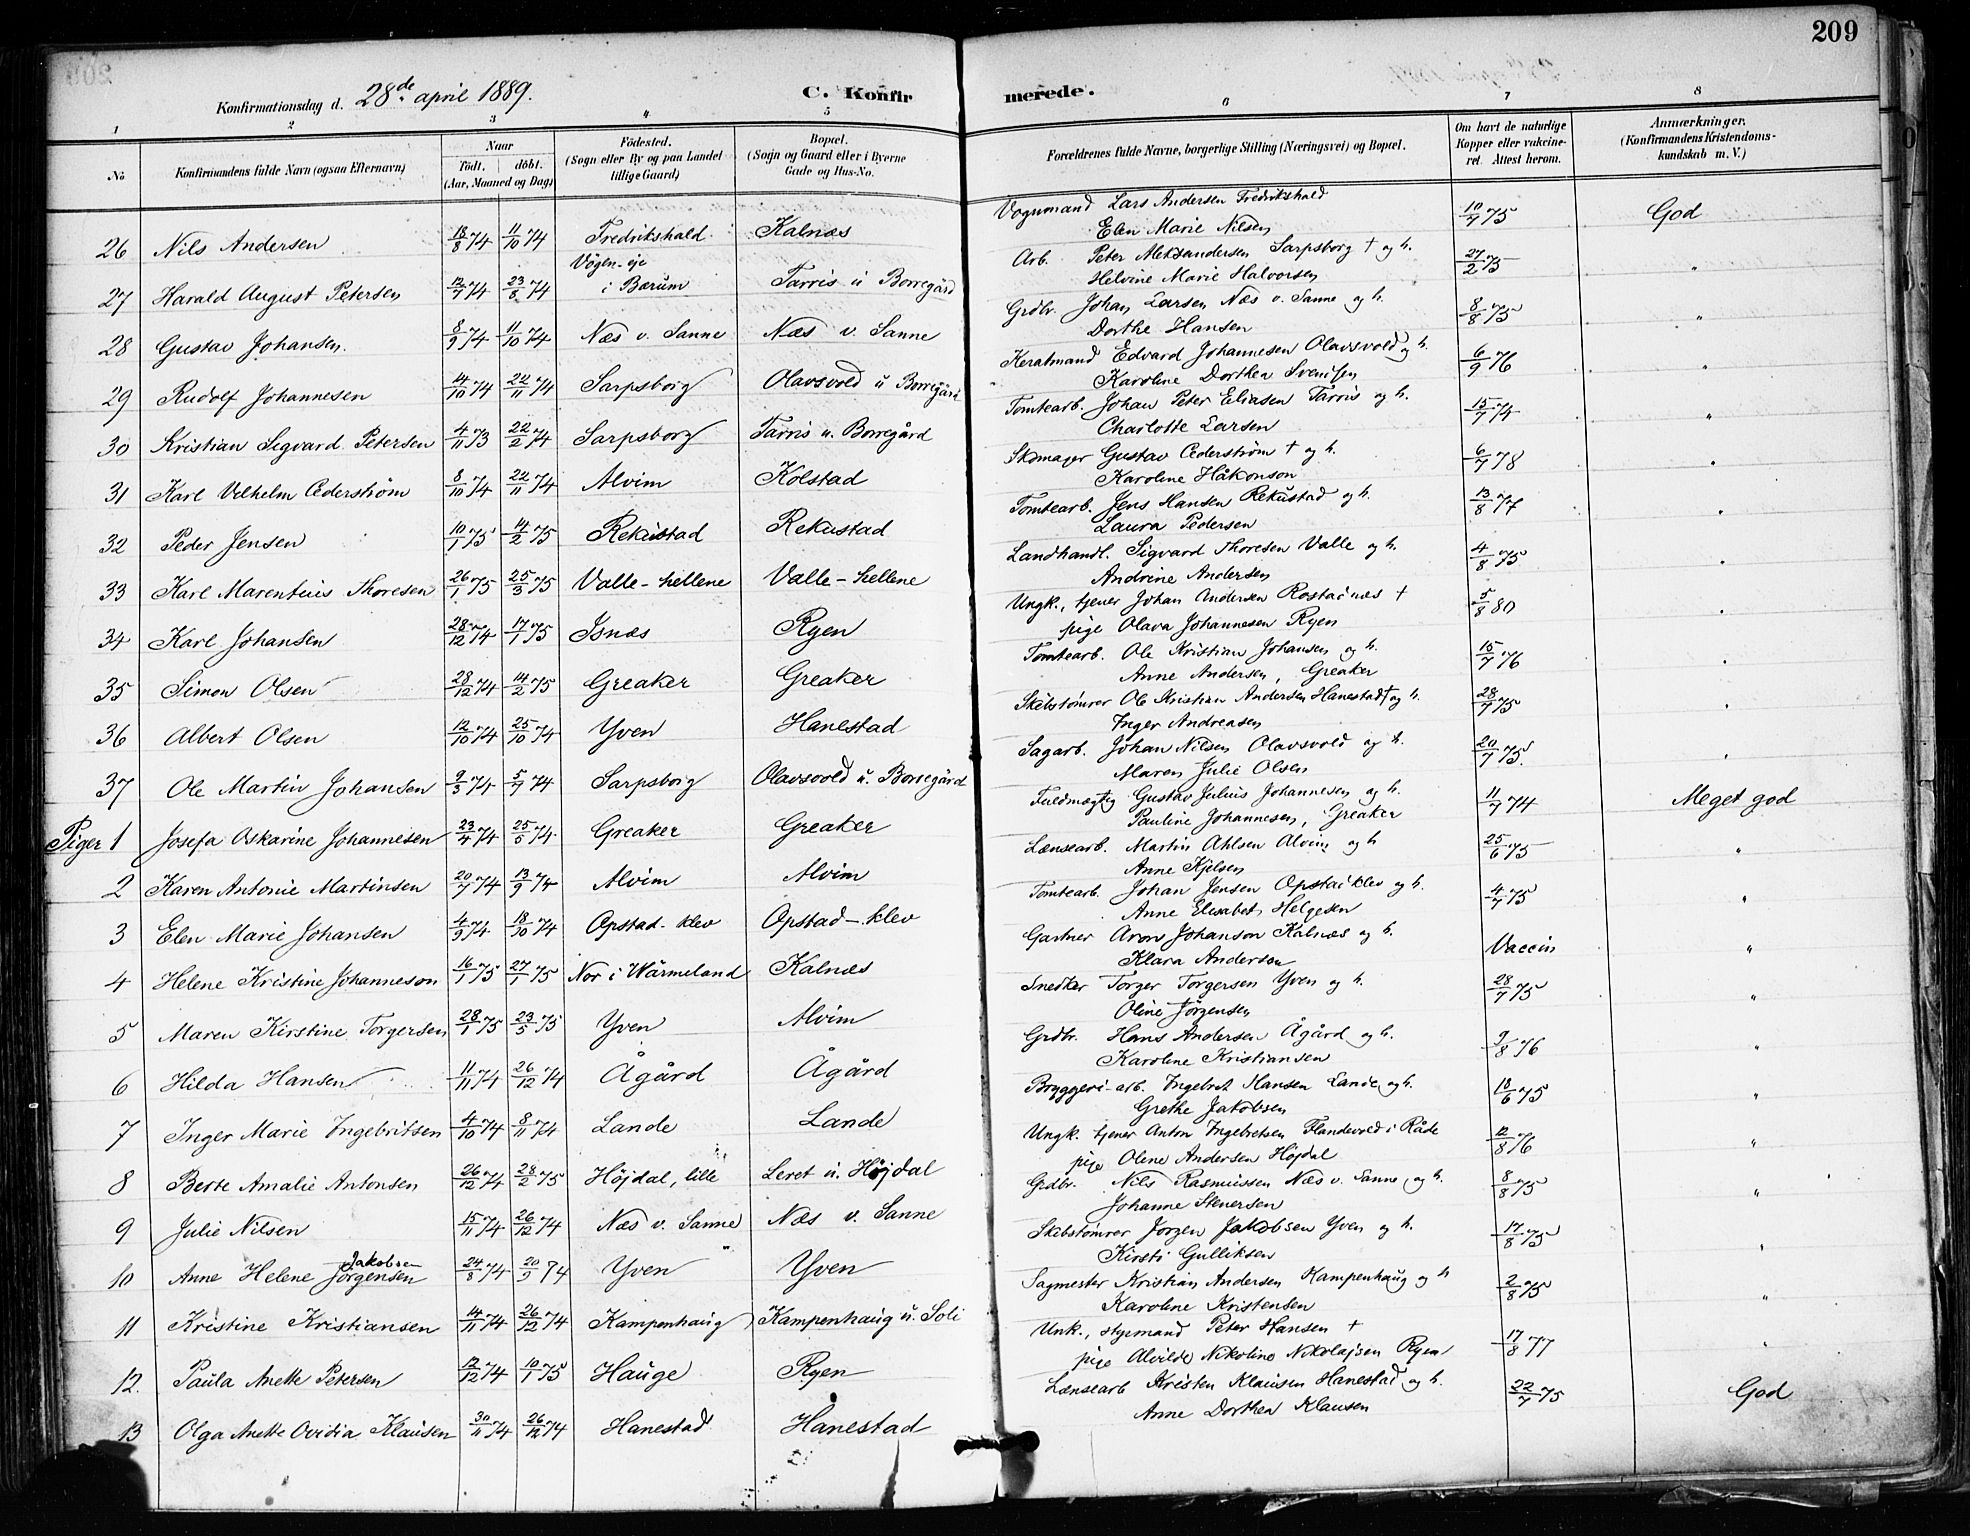 209
Konfirmationsdag d. 28de april 1889. C. Konfirmerede.
1 2 3 4 5 6 7 8
No Konfirmandens fulde Navn (ogsaa Efternavn) Naar Födt. döbt. (Aar, Maaned og Dag) Födested. (Sogn eller By og paa Landet tillige Gaard) Bopæl. (Sogn og Gaard eller i Byerne Gade og Hus-No. Forældrenes fulde Navne, borgerlige Stilling (Næringsvei) og Bopæl. Om havt de naturlige Kopper eller vakcineret. Attest herom. Anmærkninger. (Konfirmandens Kristendomskundskab m. V.)
26 Nils Andersen 18/8 74 11/10 74 Fredrikshald Kalnæs Vognmand Lars Andersen Fredrikshald Elen Marie Nilsen 10/7 75 God
27 Harald August Petersen 12/7 74 23/8 74 Vøgen-eje i Bærum Tarris u. Borregård Arb. Peter Aleksandersen Sarpsborg † og h. Helvine Marie Halvorsen 27/2 75 "
28 Gustav Johansen. 8/9 74 11/10 74 Næs v. Sanne Næs v. Sanne Grdbr. Johan Larsen Næs v. Sanne og h. Dorthe Hansen 8/8 75 "
29 Rudolf Johannesen 14/10 74 22/11 74 Sarpsborg Olavsvold u. Borregård Edvard Johannesen Olavsvold og h. Karoline Dorthea Svensen 6/9 76 "
30 Kristian Sigvard Petersen 4/11 73 22/2 74 Sarpsborg Tarris u. Borregård Tomtearb. Johan Peter Eliasen Tarris og h. Charlotte Larsen 15/7 74 "
31 Karl Vilhelm Cederstrøm 8/10 74 22/11 74 Alvim Kolstad Skomager Gustav Cederstrøm † og h. Karoline Håkonson 6/7 78 "
32 Peder Jensen 10/1 75 14/2 75 Rekustad Rekustad Tomtearb. Jens Hansen Rekustad og h. Laura Pedersen 13/8 77 "
33 Karl Marentius Thoresen 26/1 75 25/3 75 Valle-hellene Valle-hellene Landhandl. Sigvard Thoresen Valle og h. Andrine Andersen 4/8 75 "
34 Karl Johansen 28/12 74 17/1 75 Isnæs Ryen Ungk., tjener Johan Andersen Rostadnæs † pige Olava Johannesen Ryen 5/8 80 "
35 Simon Olsen 28/12 74 14/2 75 Greaker Greaker Tomtearb. Ole Kristian Johansen og h. Anne Andersen, Greaker 15/7 76 "
36 Albert Olsen 12/10 74 25/10 74 Yven Hanestad Skibstømrer Ole Kristian Andersen Hanestad † og h. Inger Andreasen 28/7 75 "
37 Ole Martin Johansen 9/3 74 5/7 74 Sarpsborg Olavsvold u. Borregård Sagarb. Johan Nilsen Olavsvold og h. Maren Julie Olsen 20/7 75. "
Piger 1 Josefa Oskarine Johannesen 23/4 74 25/5 74 Greaker Greaker Fuldmægtig Gustav Julius Johannesen og h. Pauline Johannesen, Greaker 11/7 74 Meget god
2 Karen Antonie Martinsen 20/7 74 13/9 74 Alvim Alvim Lænsearb. Martin Ahlsen Alvim og h Anne Kjelsen 25/6 75 "
3 Elen Marie Johansen 4/9 74 18/10 74 Opstad-klev Opstad-klev Tomtearb. Johan Jensen Opstadklev og h. Anne Elisabet Helgesen 4/7 75 "
4 Helene Kristine Johanneson 16/1 75 27/1 75 Nor i Wärmeland Kalnæs Gartner Aron Johanson Kalnæs og h. Klara Anderson Vaccin "
5 Maren Kirstine Torgersen 28/1 75 23/5 75 Yven Alvim Snedker Torger Torgersen Yven og h. Oline Jørgensen 28/7 75 "
6 Hilda Hansen 11/11 74 26/12 74 Ågård Ågård Grdbr. Hans Andersen Ågård og h. Karoline Kristiansen 9/8 76 "
7 Inger Marie Ingebritsen 4/10 74 8/11 74 Lande Lande Bryggeri-arb. Ingebret Hansen Lande og h. Grethe Jakobsen 18/6 75 "
8 Berte Amalie Antonsen 26/12 74 28/2 75 Höjdal, lille Leret u. Højdal Ungk. tjener Anton Ingebretsen Flandevold i Råde pige Oline Andersen Höjdal 12/8 76 "
9 Julie Nilsen 15/11 74 26/12 74 Næs v. Sanne Næs v. Sanne Grdbr. Nils Rasmussen Næs v. Sanne og h. Johanne Stenersen 8/8 75 "
10 Anne Helene Jørgensen Jakobsen 24/8 74 20/9 74 Yven Yven Skibstømrer Jørgen Jakobsen Yven og h. Kirsti Gulliksen 17/8 75 "
11 Kristine Kristiansen 14/11 74 26/12 74 Kampenhaug Kampenhaug u. Soli Sagmester Kristian Andersen Kampenhaug og h Karoline Kristensen 2/8 75 "
12. Paula Anette Petersen 12/12 74 10/1 75 Hauge Ryen Unk., styrmand Peter Hansen † pige Alvilde Nikoline Nikolajsen Ryen 17/8 77 "
13 Olga Anette Ovidia Klausen 30/11 74 26/12 74 Hanestad Hanestad Lænsearb Kristen Klausen Hanestad og h. Anne Dorthea Klausen 22/7 75 God